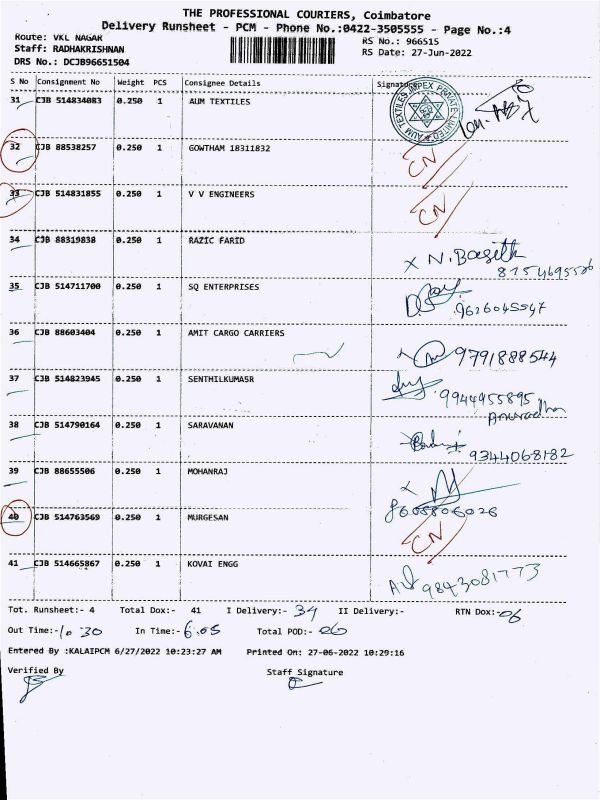 THE PROFESSIONAL COURIERS, Coimbatore
Delivery Runsheet - PCM - Phone No.:0422-3505555 - Page No.:4
Route: VKL NAGAR
RS No.: 966515
Staff: RADHAKRISHNAN
RS Date: 27-Jun-2022
DRS No.: DCJB96651504
S No Consignment No Weight PCS Consignee Details Signature
31 CJB 514834083 0.250 1 AUM TEXTILES
AUM TEXTILES IMPEX PRIVATE LIMITED
32 CJB 88538257 0.250 1 GOWTHAM 18311832 CN
33 CJB 514831855 0.250 1 V V ENGINEERS CN
34 CJB 88319838 0.250 1 RAZIC FARID
X N. Basith
8754695586
35 CJB 514711700 0.250 1 SQ ENTERPRISES
9626045547
36 CJB 88603404 0.250 1 AMIT CARGO CARRIERS
9791888544
37 CJB 514823945 0.250 1 SENTHILKUMASR
9944955895
Anuradha
38 CJB 514790164 0.250 1 SARAVANAN
9344068182
39 CJB 88655506 0.250 1 MOHANRAJ
X
8608806026
40 CJB 514763569 0.250 1 MURGESAN CN
41 CJB 514665867 0.250 1 KOVAI ENGG
9843081773
Tot. Runsheet:- 4 Total Dox:- 41 I Delivery:- 34 II Delivery:- RTN Dox:- 06
Out Time:- 10 30 In Time:- 6.05 Total POD:- 06
Entered By :KALAIPCM 6/27/2022 10:23:27 AM Printed On: 27-06-2022 10:29:16
Verified By Staff Signature